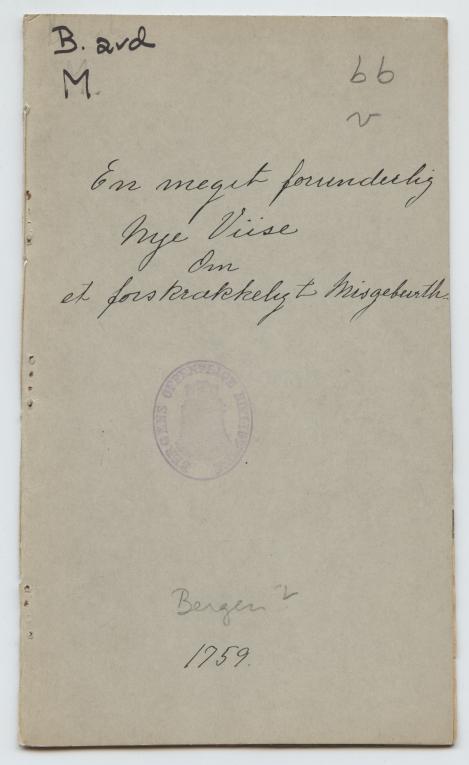 B. avd
M.
bb
v
En meget forunderlig
Nye Viise
Om
et forskrækkeligt Misgeburth.
BERGENS OFFENTLIGE BIBLIOTHEK
Bergen
1759.